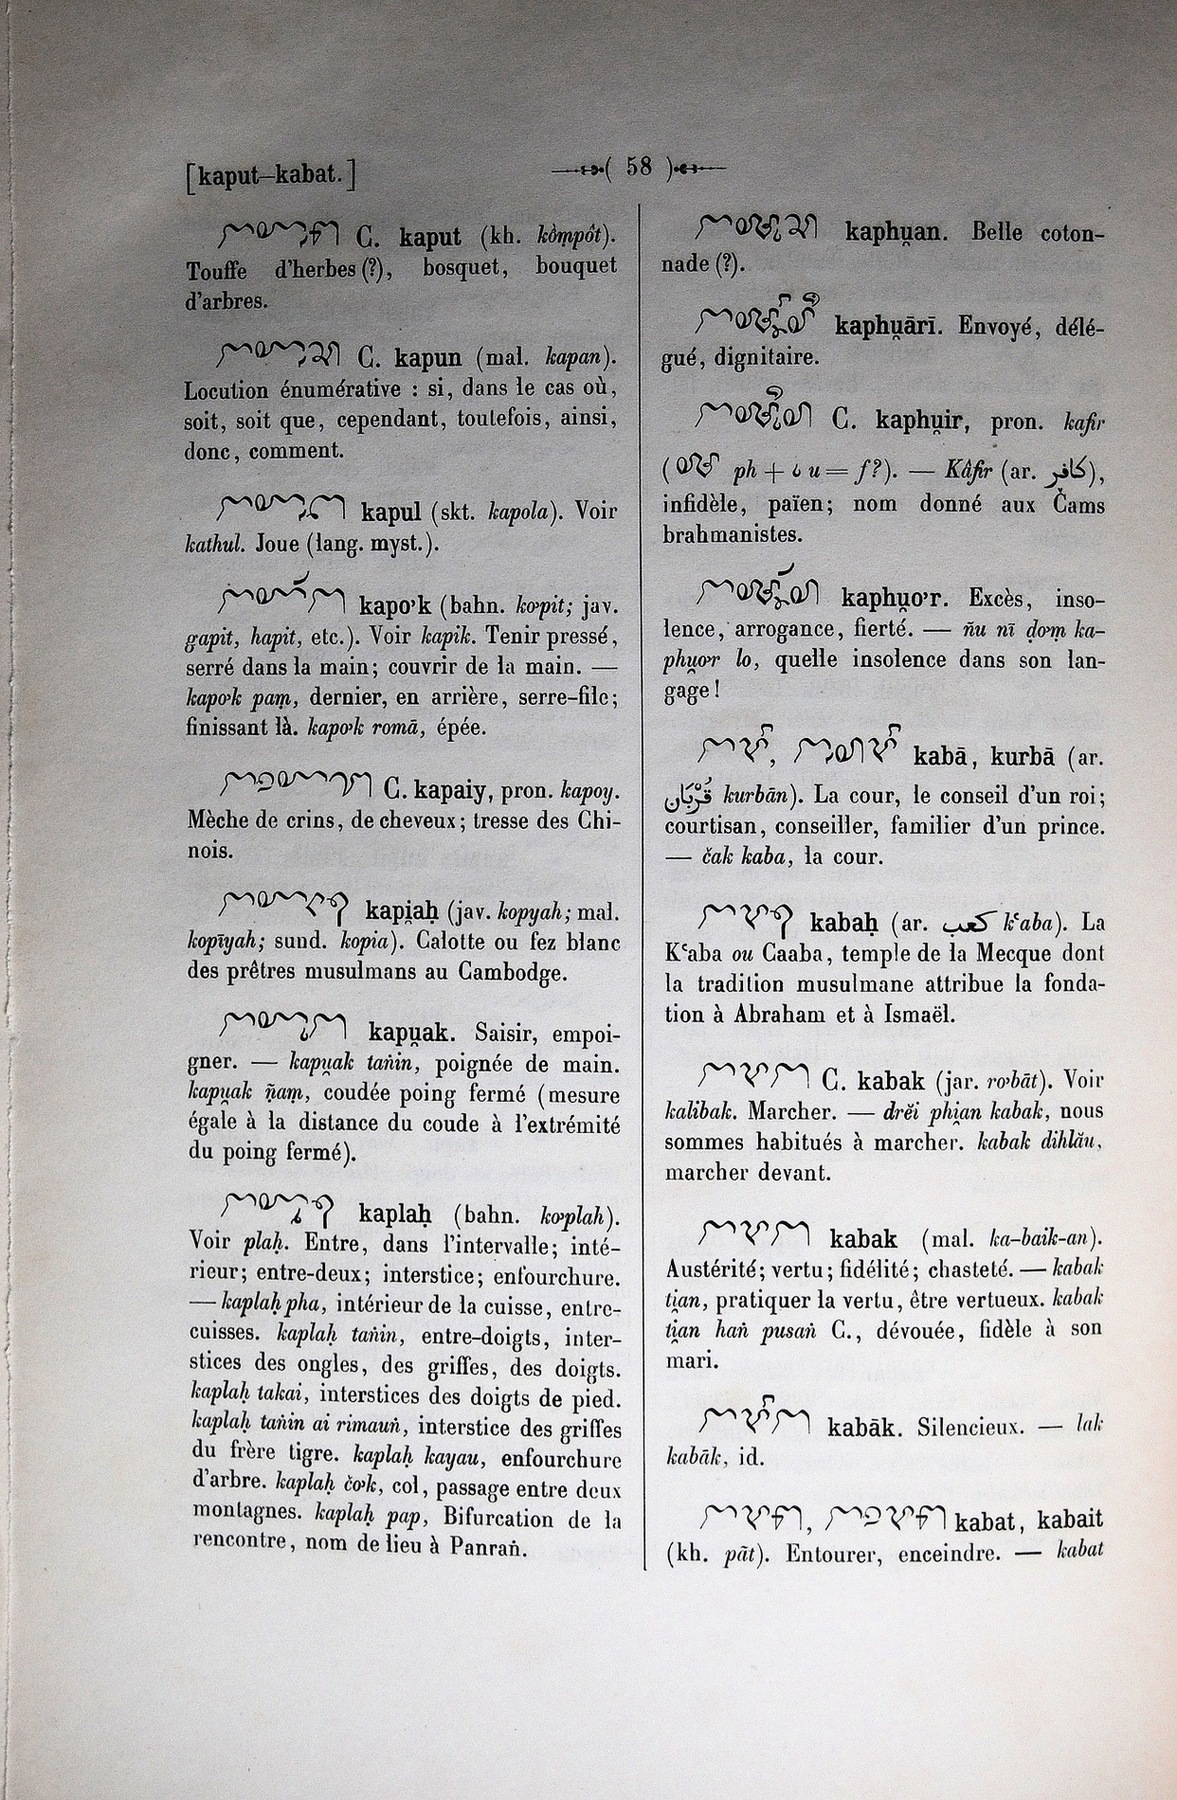 [kaput–kabat.]
( 58 )
C. kaput (kh. kòmpôt).
Touffe d'herbes (?), bosquet, bouquet
d'arbres.
C. kapun (mal. kapan).
Locution énumérative : si, dans le cas où,
soit, soit que, cependant, toutefois, ainsi,
donc, comment.
kapul (skt. kapola). Voir
kathul. Joue (lang. myst.).
kapo'k (bahn. ko'pit; jav.
gapit, hapit, etc.). Voir kapik. Tenir pressé,
serré dans la main; couvrir de la main. —
kapo'k paṃ, dernier, en arrière, serre-file;
finissant là. kapo'k romā, épée.
C. kapaiy, pron. kapoy.
Mèche de crins, de cheveux; tresse des Chi-
nois.
kapi̯aḥ (jav. kopyah; mal.
kopīyah; sund. kopia). Calotte ou fez blanc
des prêtres musulmans au Cambodge.
kapu̯ak. Saisir, empoi-
gner. — kapu̯ak tañin, poignée de main.
kapu̯ak ñaṃ, coudée poing fermé (mesure
égale à la distance du coude à l'extrémité
du poing fermé).
kaplaḥ (bahn. ko'plah).
Voir plaḥ. Entre, dans l'intervalle; inté-
rieur; entre-deux; interstice; enfourchure.
— kaplaḥ pha, intérieur de la cuisse, entre-
cuisses. kaplaḥ tañin, entre-doigts, inter-
stices des ongles, des griffes, des doigts.
kaplaḥ takai, interstices des doigts de pied.
kaplaḥ tañin ai rimauṅ, interstice des griffes
du frère tigre. kaplaḥ kayau, enfourchure
d'arbre. kaplaḥ čo'k, col, passage entre deux
montagnes. kaplaḥ pap, Bifurcation de la
rencontre, nom de lieu à Panraṅ.
kaphu̯an. Belle coton-
nade (?).
kaphu̯ārī. Envoyé, délé-
gué, dignitaire.
C. kaphu̯ir, pron. kafir
( ph + u = f?). — Kâfir (ar. كافر),
infidèle, païen; nom donné aux Čams
brahmanistes.
kaphu̯o'r. Excès, inso-
lence, arrogance, fierté. — ñu nī ḍo'ṃ ka-
phu̯o'r lo, quelle insolence dans son lan-
gage!
kabā, kurbā (ar.
قُرْبَان kurbān). La cour, le conseil d'un roi;
courtisan, conseiller, familier d'un prince.
— čak kaba, la cour.
kabaḥ (ar. كعب kʿaba). La
Kʿaba ou Caaba, temple de la Mecque dont
la tradition musulmane attribue la fonda-
tion à Abraham et à Ismaël.
C. kabak (jar. ro'bāt). Voir
kalibak. Marcher. — drĕi phi̯an kabak, nous
sommes habitués à marcher. kabak dihlău,
marcher devant.
kabak (mal. ka-baik-an).
Austérité; vertu; fidélité; chasteté. — kabak
ti̯an, pratiquer la vertu, être vertueux. kabak
ti̯an haṅ pusaṅ C., dévouée, fidèle à son
mari.
kabāk. Silencieux. — lak
kabāk, id.
kabat, kabait
(kh. pāt). Entourer, enceindre. — kabat